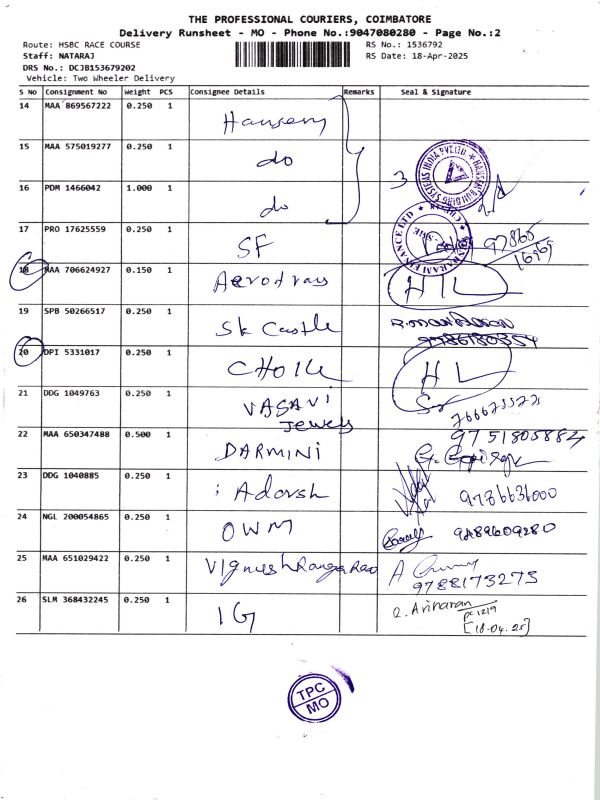 THE PROFESSIONAL COURIERS, COIMBATORE
Delivery Runsheet - MO - Phone No.:9047080280 - Page No.:2
Route: HSBC RACE COURSE RS No.: 1536792
Staff: NATARAJ RS Date: 18-Apr-2025
DRS No.: DCJB153679202
Vehicle: Two Wheeler Delivery
S No Consignment No Weight PCS Consignee Details Remarks Seal & Signature
14 MAA 869567222 0.250 1
15 MAA 575019277 0.250 1 do
16 PDM 1466042 1.000 1 do 3
17 PRO 17625559 0.250 1 SF 97865
16969
18 MAA 706624927 0.150 1 HL
19 SPB 50266517 0.250 1 Sk Castle
9786180354
20 DPI 5331017 0.250 1 HL
21 DDG 1049763 0.250 1 VASAVI
Jewels
22 MAA 650347488 0.500 1 DARMINI 9751805884
23 DDG 1040885 0.250 1 : Adarsh 9786631000
24 NGL 200054865 0.250 1 OWM 9489609280
25 MAA 651029422 0.250 1 Vignesh Ranga Rao
9788173273
26 SLM 368432245 0.250 1 IG
PC 1219
[18.04.25]
TPC
MO